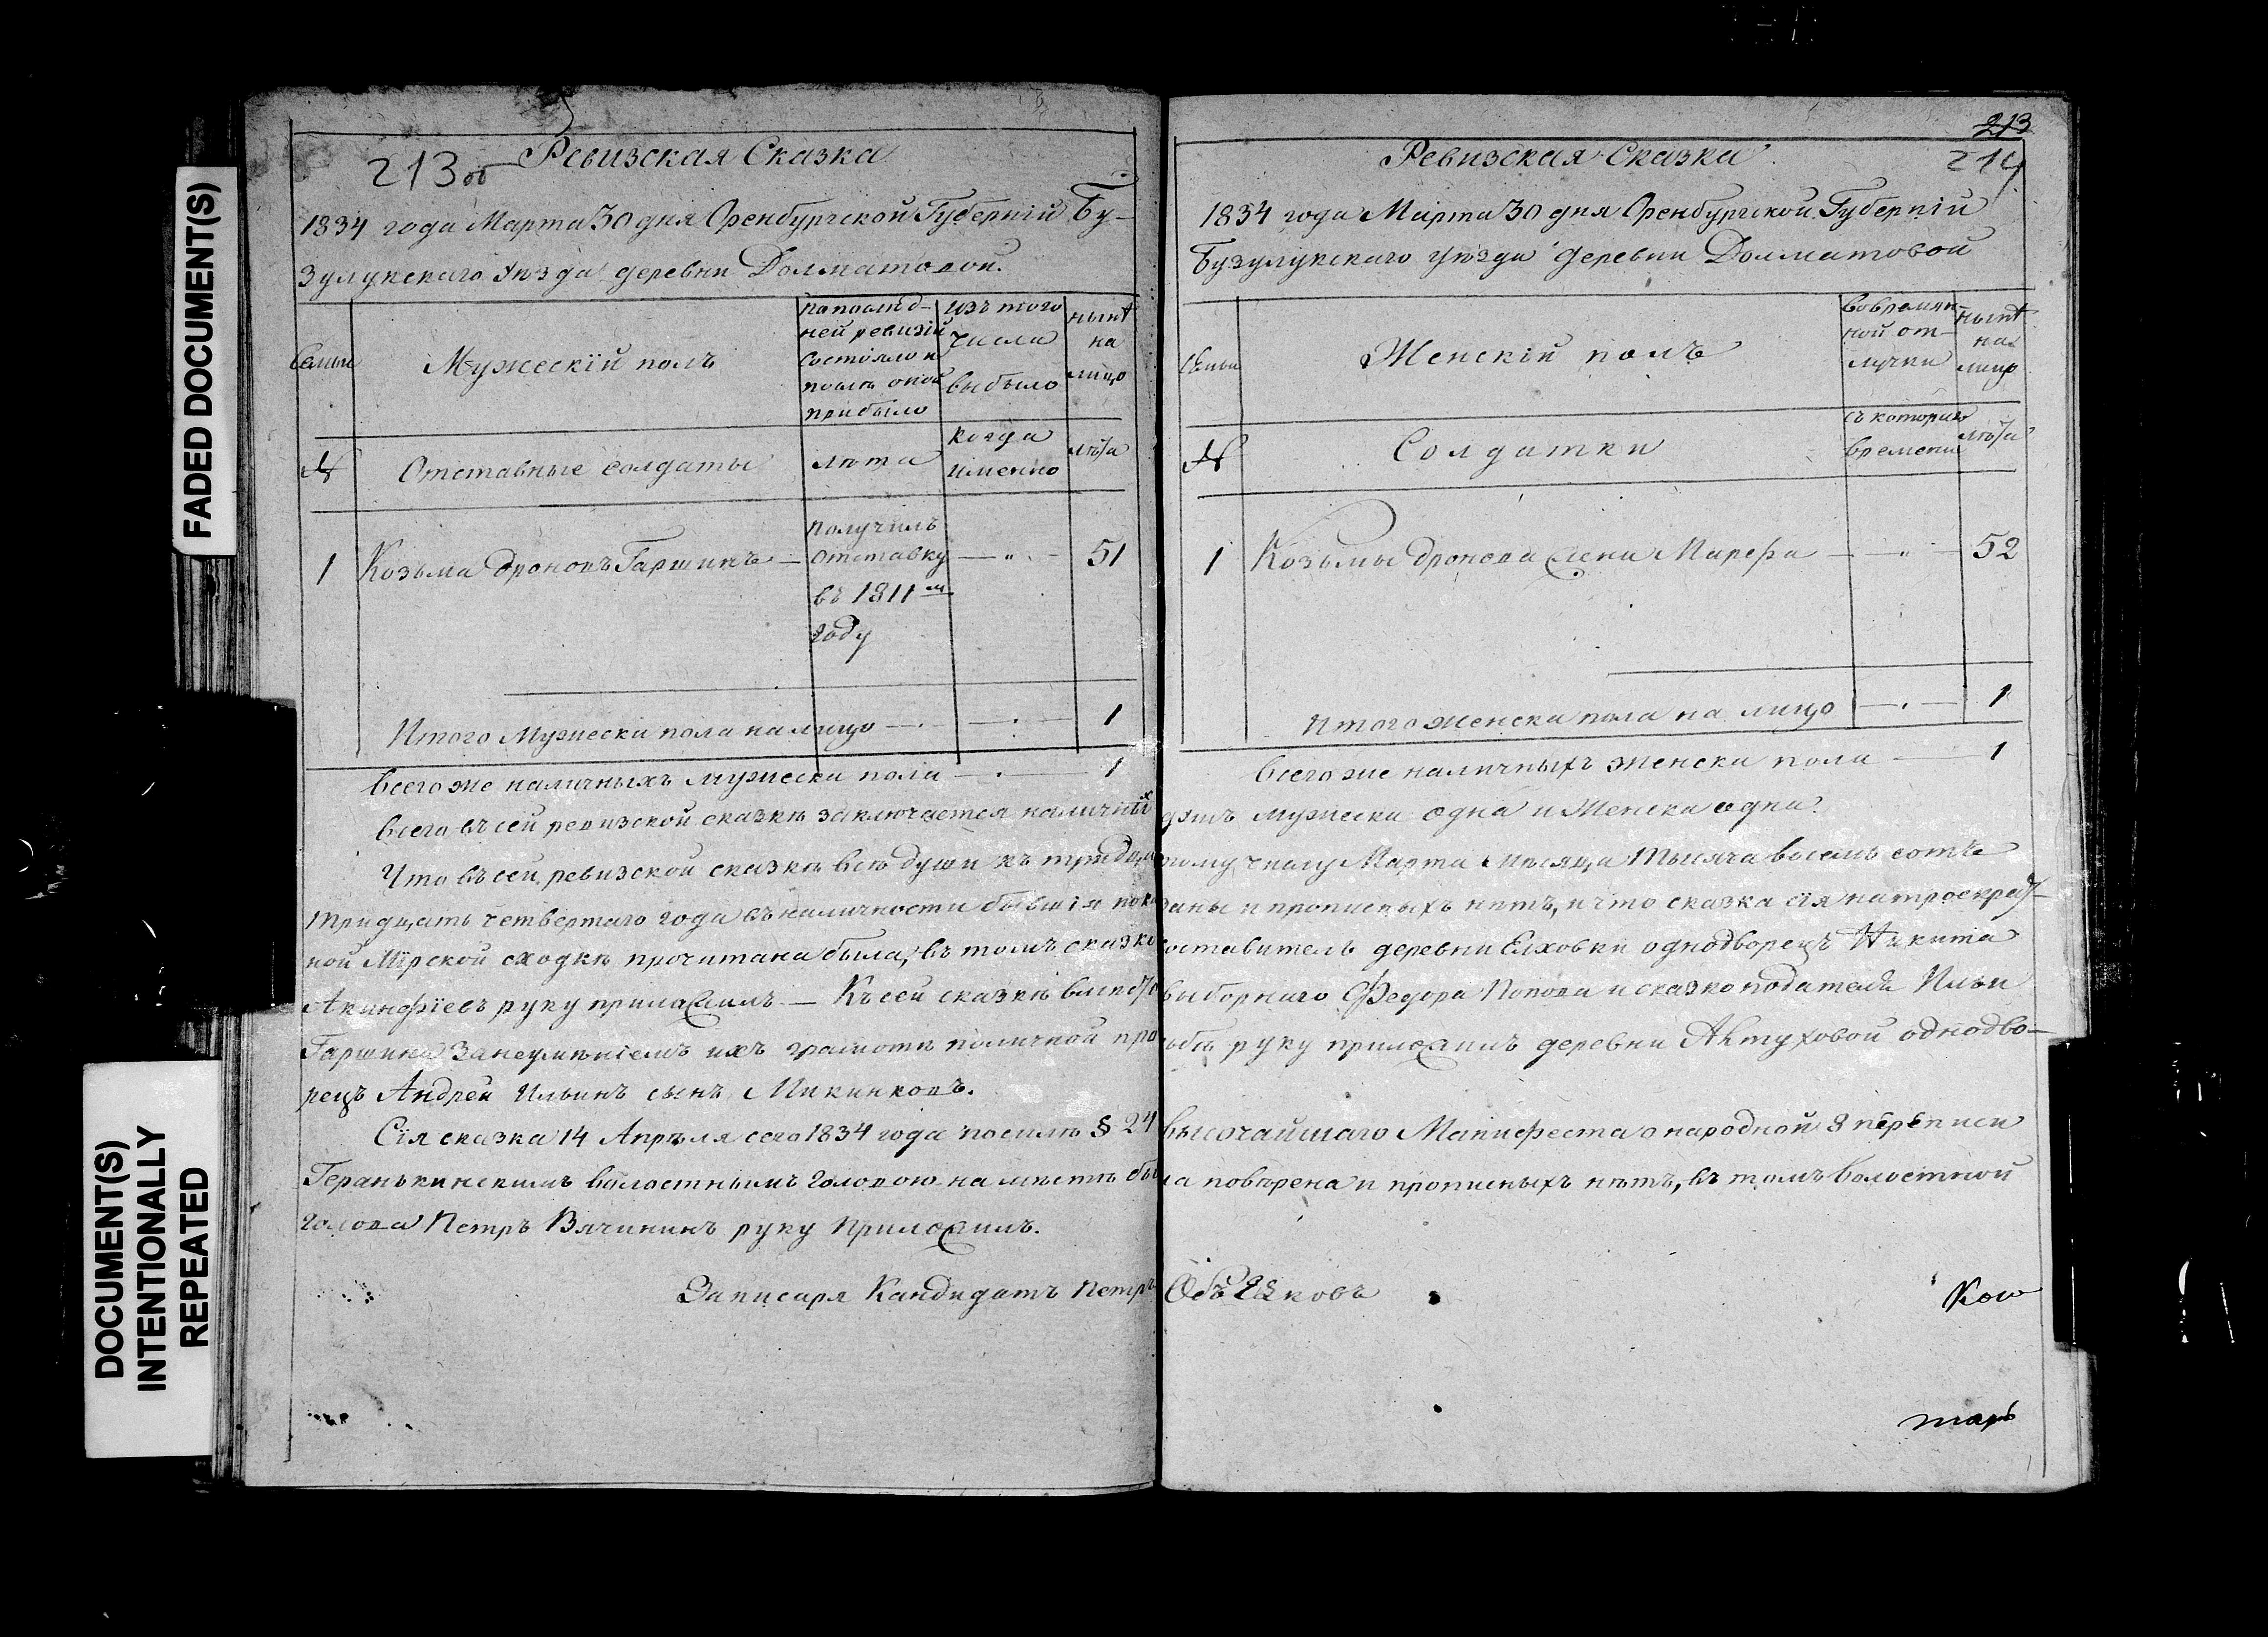 FADED DOCUMENT(S)
DOCUMENT(S)
INTENTIONALLY
REPEATED
213 об
Ревизская Сказка
1834 года Марта 30 дня Оренбургской Губерніи Бу-
зулукскаго уѣзда деревни Долматовой.
Семьи
Мужескій полъ
по послѣд-
ней ревизіи
состояло и
послѣ оной
прибыло
изъ того
числа
выбыло
нынѣ
на
лицо
№
Отставные солдаты
лѣта
когда
именно
лѣта
1 Козьма Дроновъ Гаршинъ —
получилъ
отставку
въ 1811м
году
— „ —
51
Итого Мужеска пола налицо — . — . — 1
Всего же наличныхъ мужеска пола — . — 1
Всего въ сей ревизской сказкѣ заключается наличныхъ
Что въ сей ревизской сказкѣ всѣ души къ тридца
тридцать четвертаго года въ наличности бывшія пока
ной Мірской сходкѣ прочитана была, въ томъ сказко
Акинфіевъ руку приложилъ. — Къ сей сказкѣ вмѣсто
Гаршина за неумѣніемъ ихъ грамотѣ по личной про
рецъ Андрей Ильинъ сынъ Микинковъ.
Сія сказка 14 Апрѣля сего 1834 года по силѣ § 24
Геранькинскимъ волостнымъ головою на мѣстѣ бы
голова Петръ Вячининъ руку приложилъ.
За писаря Кандидатъ Петръ
213
214
Ревизская Сказка
1834 года Марта 30 дня Оренбургской Губерніи
Бузулукскаго уѣзда деревни Долматовой
Семьи
Женскій полъ
во времян-
ной от-
лучки
нынѣ
на
лицо
№
Солдатки
съ котораго
времени
лѣта
1 Козьмы Дронова жена Марфа — „ — 52
Итого женска пола на лицо — . — 1
Всего же наличныхъ женска пола — 1
душъ мужеска одна и Женска одна.
тому числу Марта мѣсяца тысяча восемь сотъ
заны и прописныхъ нѣтъ, и что сказка сія на троекрат-
составитель деревни Елховки однодворецъ Никита
выборнаго Федора Попова и сказкоподателя Ильи
сьбѣ руку приложилъ деревни Ахтуховой однодво-
высочайшаго Манифеста о народной 8 переписи
ла повѣрена и прописныхъ нѣтъ, въ томъ Волостной
Объѣдковъ
тарь